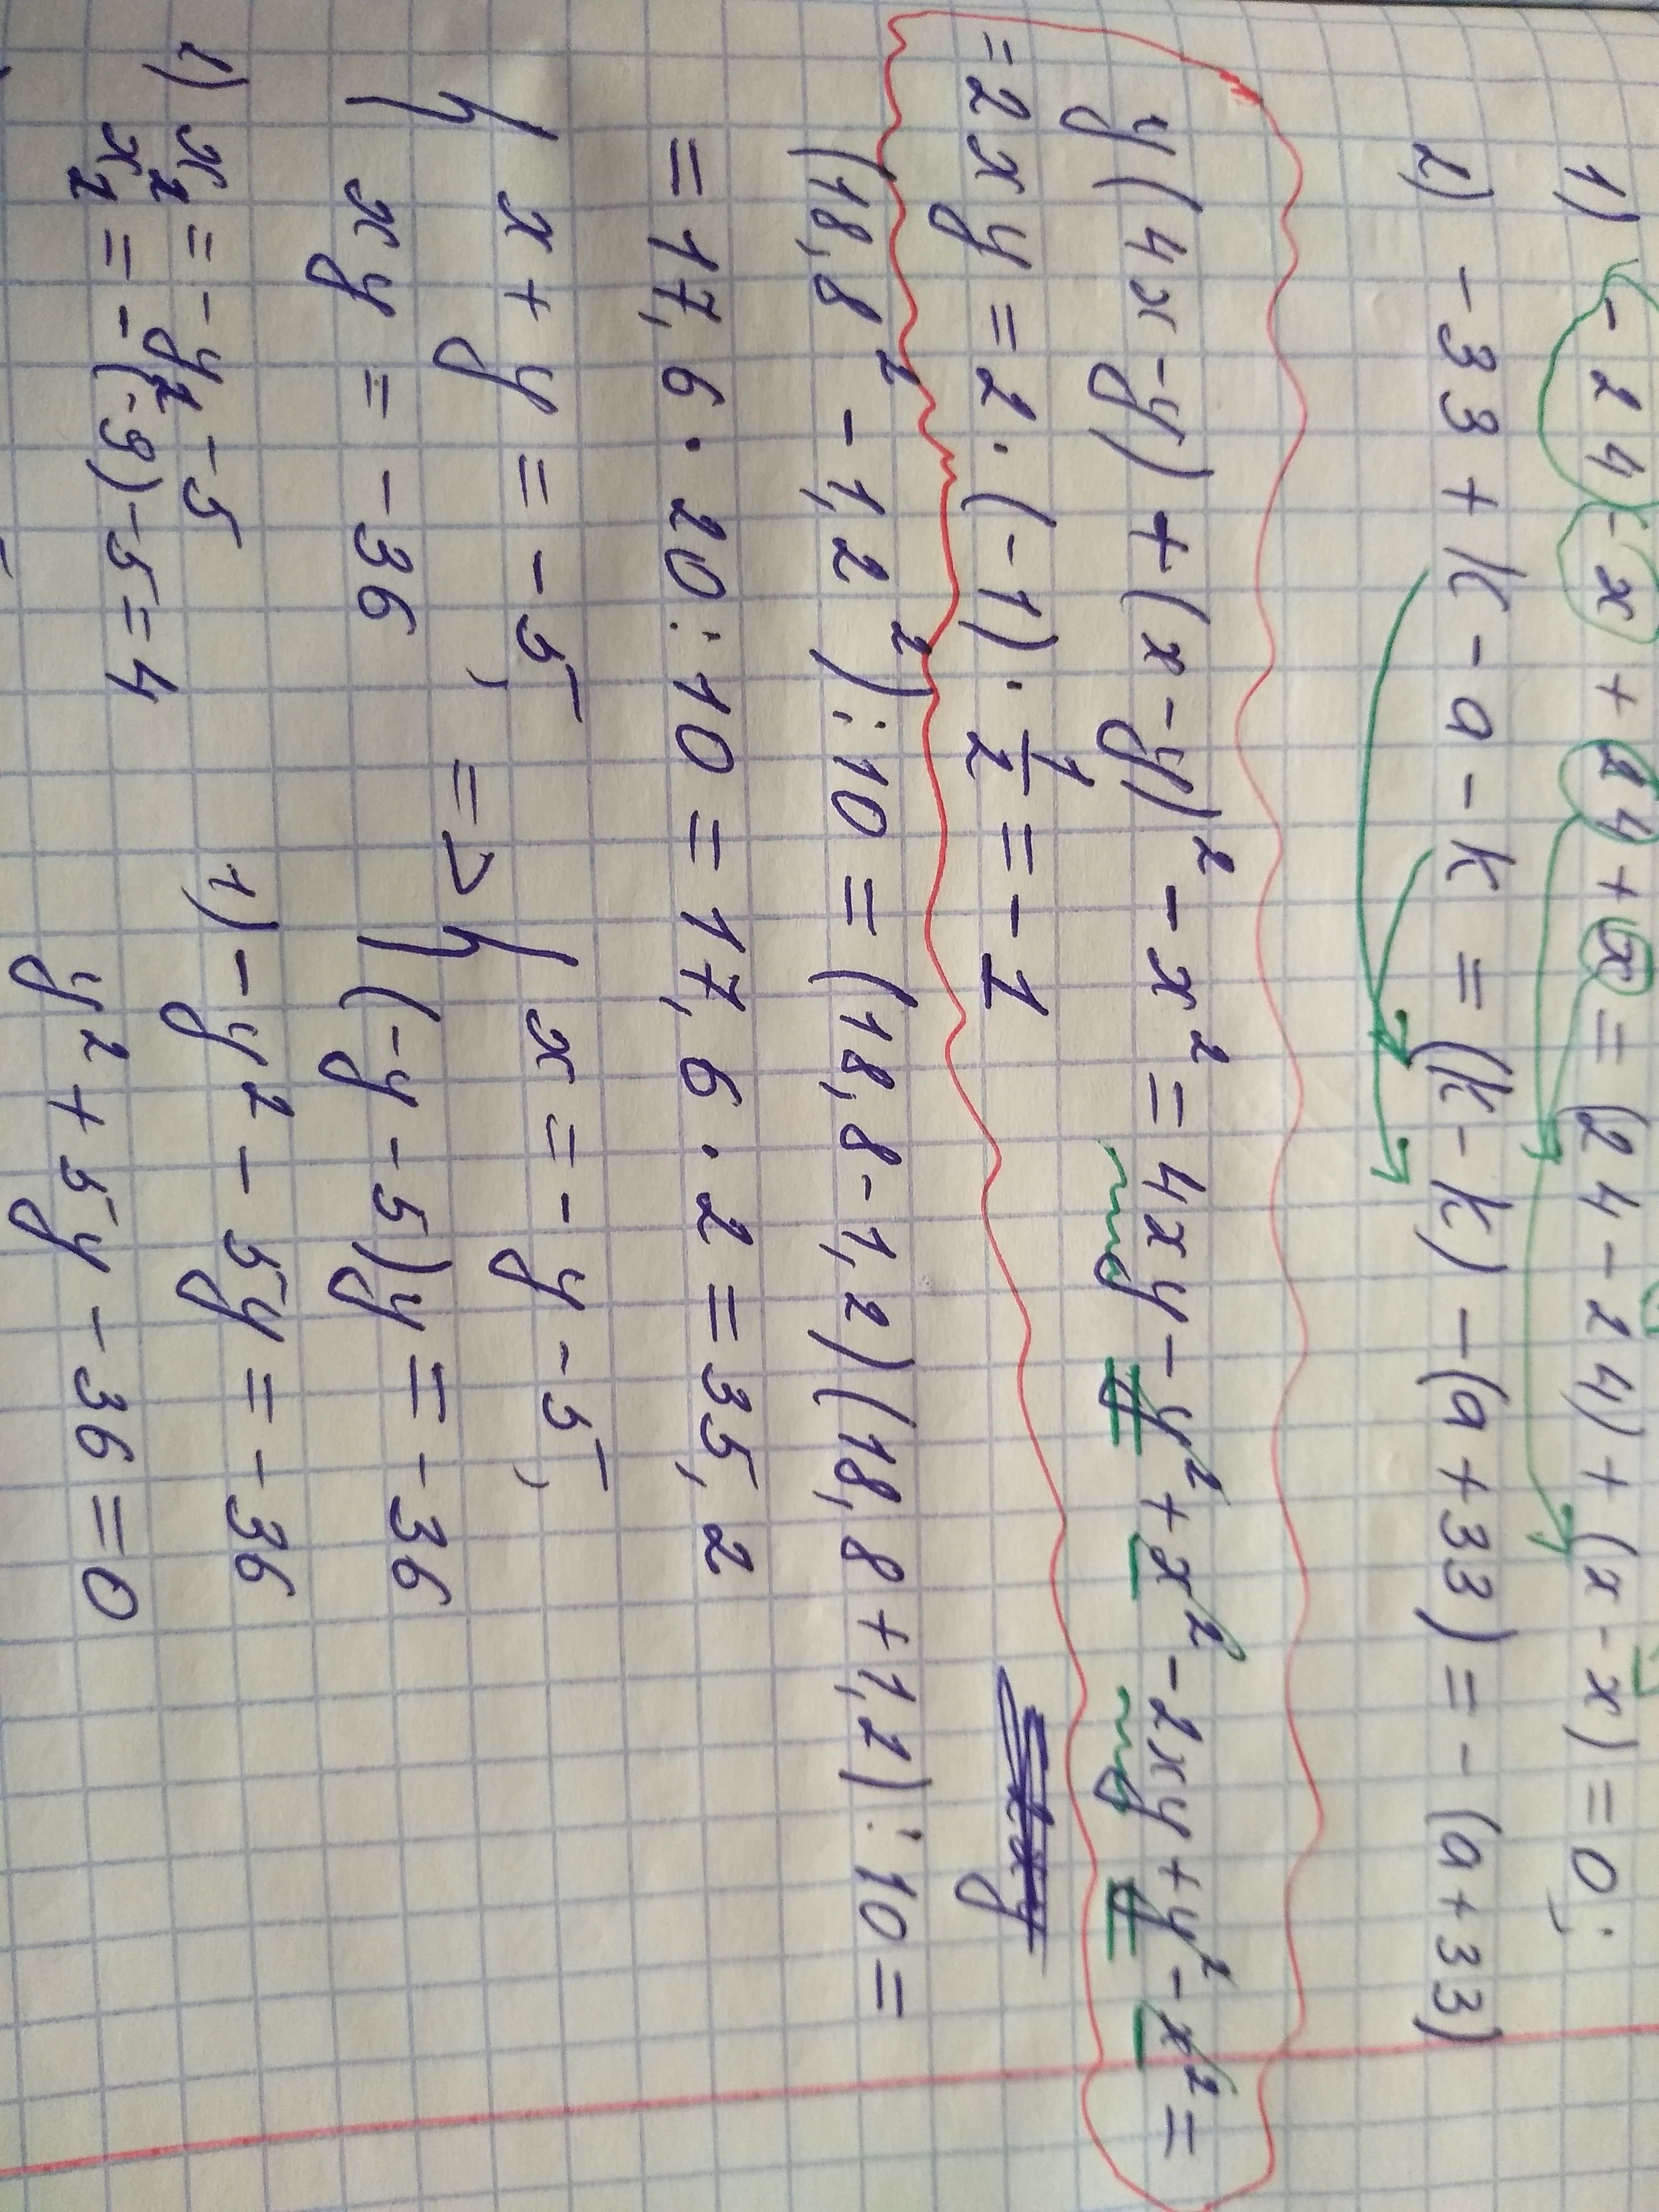 1) -24-x+24+x=(24-24)+(x-x)=0;
2) -33+k-a-k=(k-k)-(a+33)=-(a+33)
y(4x-y)+(x-y)²-x²=4xy-y²+x²-2xy+y²-x²=
=2xy=2·(-1)·1/2=-1
(18,8²-1,2²):10=(18,8-1,2)(18,8+1,2):10=
=17,6·20:10=17,6·2=35,2
{ x+y=-5, => { x=-y-5,
{ xy=-36 { (-y-5)y=-36
1) -y²-5y=-36
y²+5y-36=0
2) x₂=-y₂-5
x₂=-(-9)-5=4